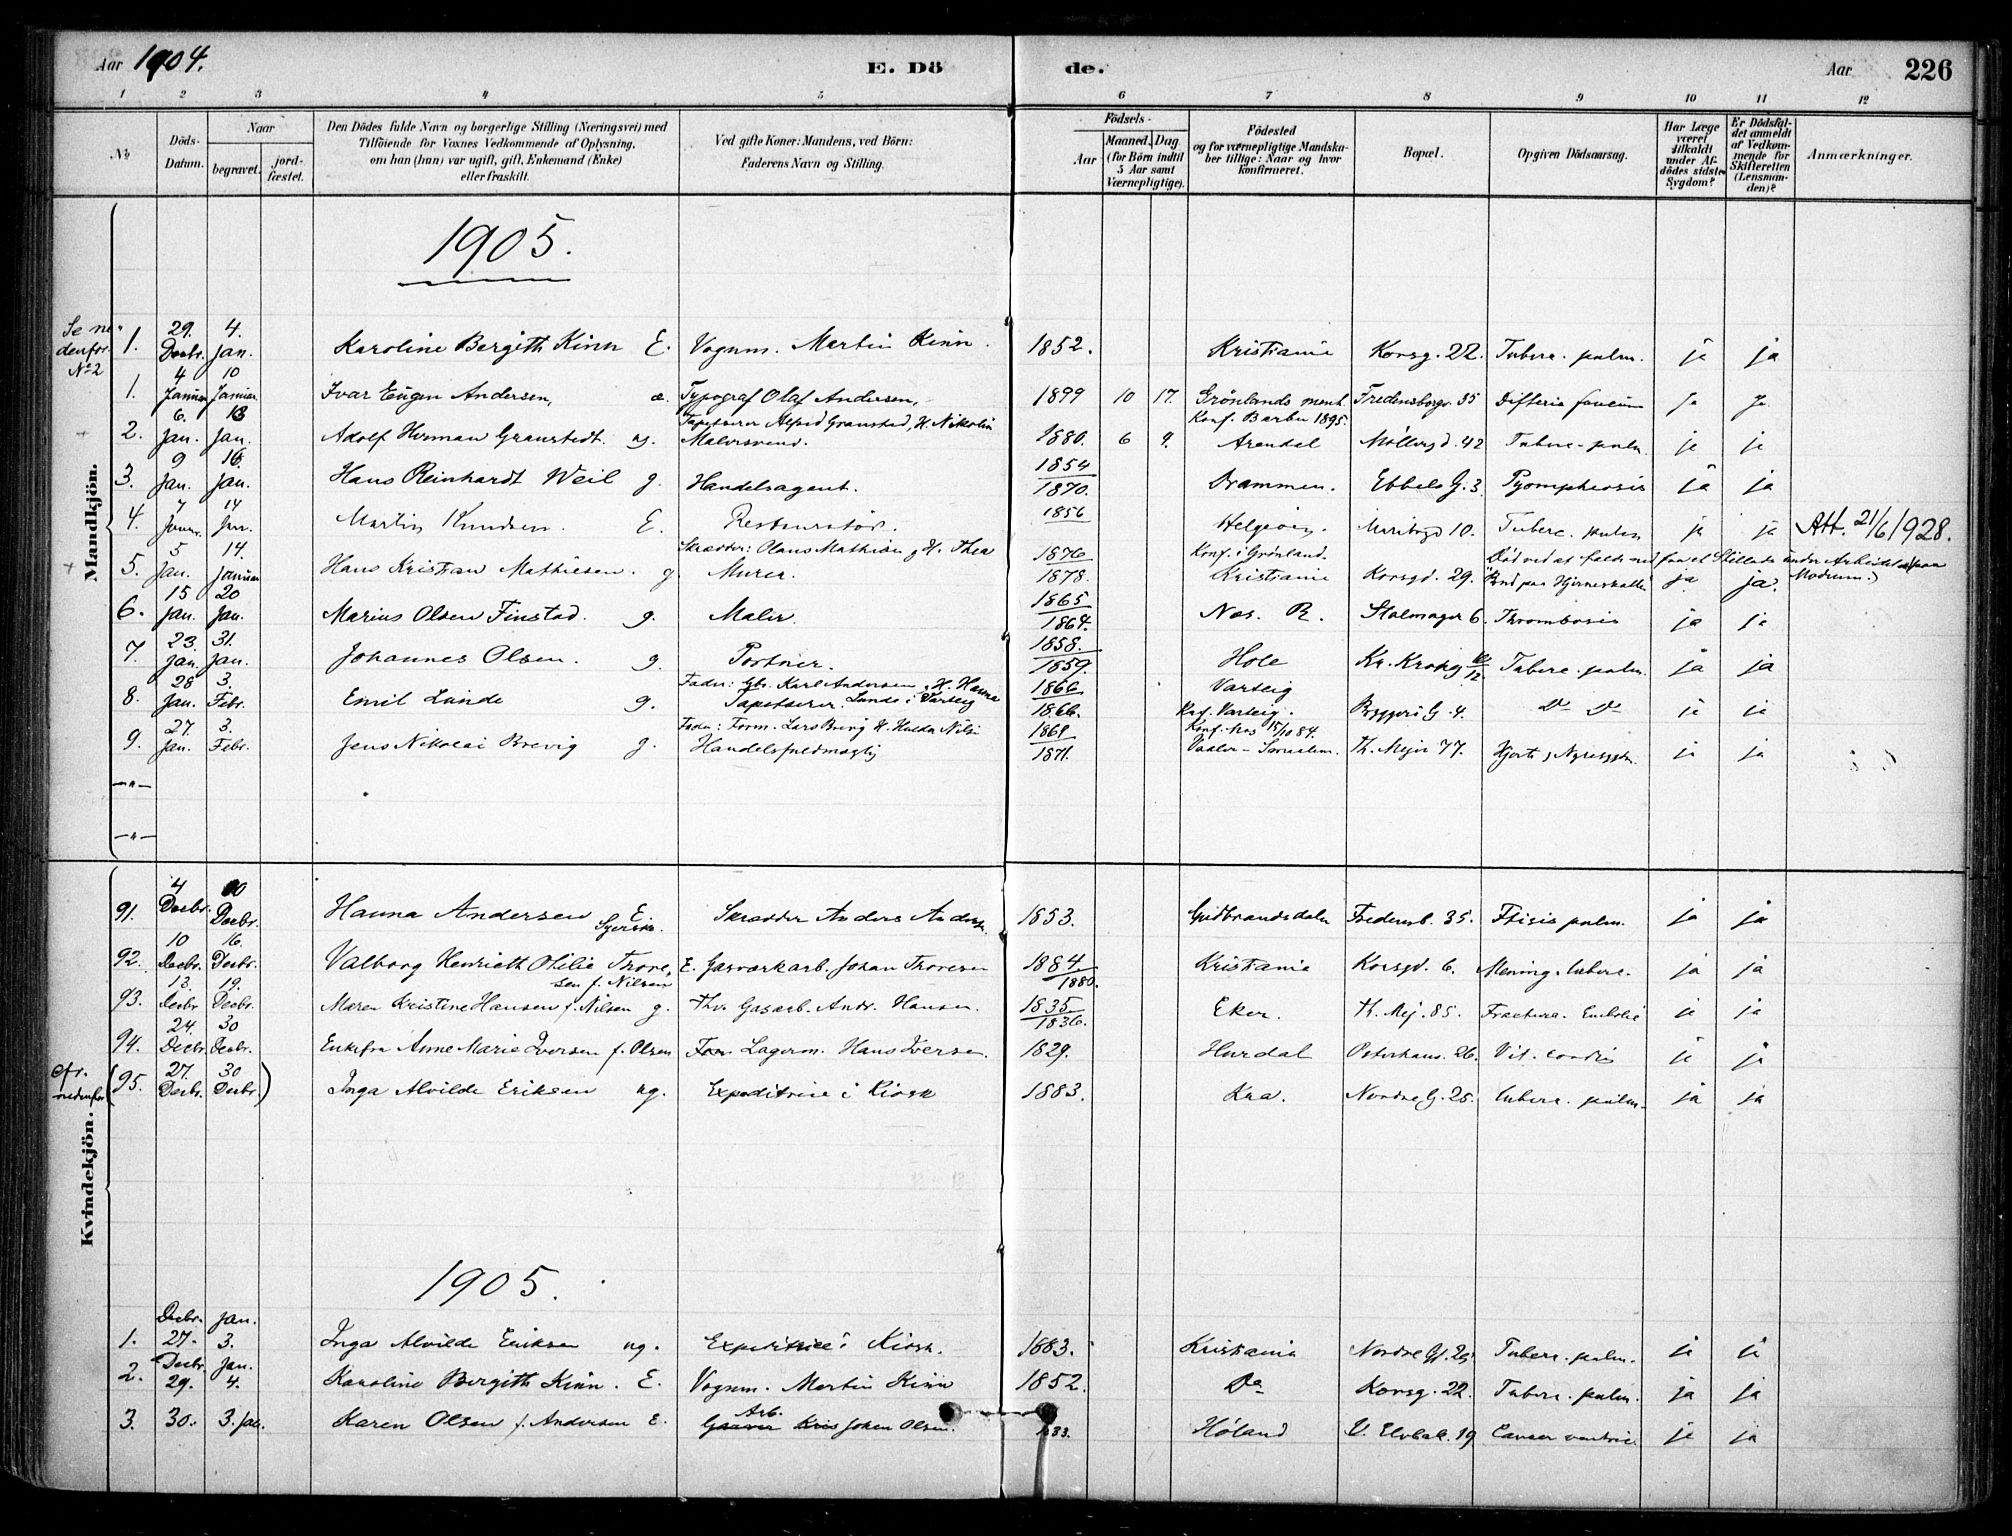 Aar 1904. E. Dö de. Aar 226
1 2 3 4 5 6 7 8 9 10 11 12
No. Döds-Datum. Naar begravet. jordfæstet. Den Dödes fulde Navn og borgerlige Stilling (Næringsvei) med Tilföiende for Voxnes Vedkommende af Oplysning, om han (hun) var ugift, gift, Enkemand (Enke) eller fraskilt. Ved gifte Koner: Mandens, ved Börn: Faderens Navn og Stilling. Födsels- Aar Maaned. Dag (for Börn indtil 5 Aar samt Værnepligtige). Födested og for værnepligtige Mandskaber tillige: Naar og hvor konfirmeret. Bopæl. Opgiven Dödsaarsag. Har Læge været tilkaldt under Afdödes sidste Sygdom? Er Dödsfaldet anmeldt af Vedkommende for Skifteretten (Lensmanden)? Anmærkninger.
Mandkjön.
1905.
Se nedenfor No 2 1. 29. Decbr. 4. Jan. Karoline Bergith Kinn E. Vognm. Martin Kinn. 1852. Kristiania Korsg. 22. Tuberc. pulm. ja ja
1. 4 Januar 10 Januar Ivar Eugen Andersen, æ. Typograf Olaf Andersen, 1899 10 17. Grönlands menh. Fredensborgv. 35 Difteria faucium ja ja
2. 6. Jan. 13 Jan. Adolf Herman Granstedt. ug. Tapetserer Alfred Granstad, H. Nikolin Malersvend. 1880. 6 9. Konf. Barbu 1895. Arendal Møllergd. 42 Tuberc. pulm ja ja
3. 9 Jan. 16. Jan. Hans Reinhardt Weil g. Handelsagent. 1854 1870. Drammen. Ebbels G. 3. ja ja
4. 7 14 Jan. Martin Knudsen. E. Restauratør. 1856 Helgeøen. Maribogd 10. Tuberc. pulm ja ja Att. 21/6 1928.
5. 5 Jan. 14. Januar Hans Kristian Mathiesen. g. Skrædder: Olaus Mathisen g H. Thea Murer. 1876 1878. Konf. i Grønland. Kristiania Korsgd. 29. Død ved at falde ned fra et Stillads under Arbeide (paa Modum.) Brud paa Hjerneskalle ja ja.
6. 15 Jan. 20 Jan. Marius Olsen Finstad. g. Maler 1865 1864. Nes. R. Stolmager 6. Thrombosis ja ja
7. 23. Jan. 31. Jan. Johannes Olsen. g. Portner. 1858. 1859. Hole Kr. Krohg 10/12 Tuberc. pulm. ja ja
8. 28 Jan. 3. Febr. Emil Lunde g. Fader: Gbr. Karl Andersen, H. Hanna Tapetserer. Lunde i Varteig 1866 1866. Varteig Konf. Varteig. Bryggeri G. 4. Do Do ja ja
9. 27. Jan. 3. Febr. Jens Nikolai Brevig g. Fader: Form. Lars Brevig H. Hulda Nilsd. Handelsfuldmægtig 1869 1871. Konf. Mos 15/10 84. Vaaler - Th. Mejer 77. Hjerte g Nyresygdm. ja ja
—„—
—„—
Kvindekjön.
91. 4 Decbr. 10 Decbr. Hanna Andersen E. Syerske. Skrædder Anders Anders. 1853. Gudbrandsdalen Fredensb. 35. Ftisis pulm. ja ja
92. 10 Decbr. 16. Decbr. Valborg Henriette Otilie Thoresen f. Nilsen E. Gasværkarb. Johan Thoresen 1884 1880. Kristiania Korsgd. 6. Mening. tuberc. ja ja
93. 13. Decbr. 19. Decbr. Maren Kristine Hansen f. Nilsen g. Thv. Gasarb. Andr. Hansen. 1835 1836. Eker. Th. Mej. 85. Fractura. Embolie ja ja
94. 24. Decbr. 30 Decbr. Enkefru Anne Marie Iversen f. Olsen Lagerm. Hans Iversen. 1829. Hurdal Osterhaus. 26. Vit. cordis ja ja
cfr. nedenfor (95. 27. Decbr. 30 Decbr.) Inga Alvilde Eriksen ug. Expeditrice i Kiosk 1883. Kra. Nordre G. 25. Tuberc. pulm. ja ja
1905.
1. Decbr. 27. Jan. 3. Inga Alvilde Eriksen ug. Expeditrice i Kiosk. 1883. Kristiania Nordre G. 25 Tuberc. pulm. ja ja
2. Decbr. 29. Jan. 4. Karoline Bergith Kinn. E. Vognm. Martin Kinn 1852. Do Korsg. 22. Tuberc. pulm. ja ja
3. 30. 3. Jan. Karen Olsen f. Andersen E. Arb. Johan Olsen. 1833. Høland V. Elvbak. 19 Cancer ventric. ja ja